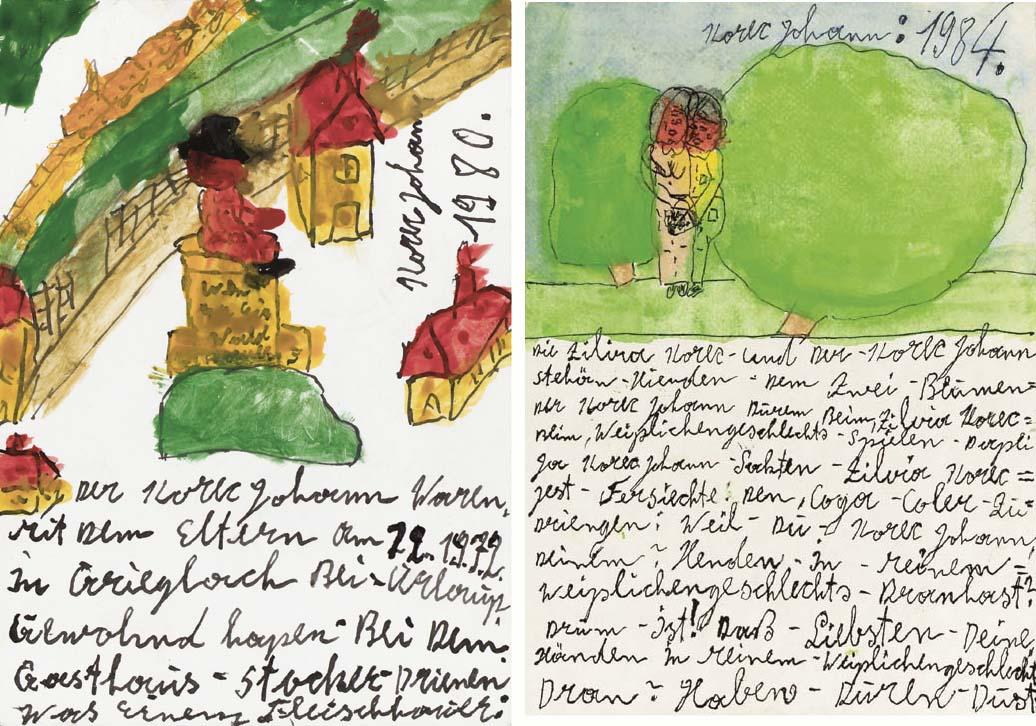 Korec Johann
1980.
Der Korec Johann Waren,
mit Dem Eltern am 72. 1979.
in Griegloch Bei-Urlaup
Gewohnd hapen-Bei Dem.
Gasthaus-Stocker-Drienen
Was Ernem Fleischhauer:
Korec Johann: 1984.
Die Zilvia Korec-und Der-Korec Johann
stehörn-Hienden-Dem Zwei-Blumen
Der Korec Johann Durem Beim, Zilvia Korec=
Blim, Weiplichengeschlechts-Spielen-
Ja Korec Johann-Sachten-Zilvia Korec=
jest-Fersiechte: Den, Coga-Coler-Zu-
Driengen: Weil-Du-Korec Johann,
Deinem? Henden-in-reinem=
weiplichengeschlechts-Dranhast:
Drum-ist! Daß-Liebsten-Deine
Händen in reinem-Weiplichengeschlecht
Dran? Haben-Duren-Dust